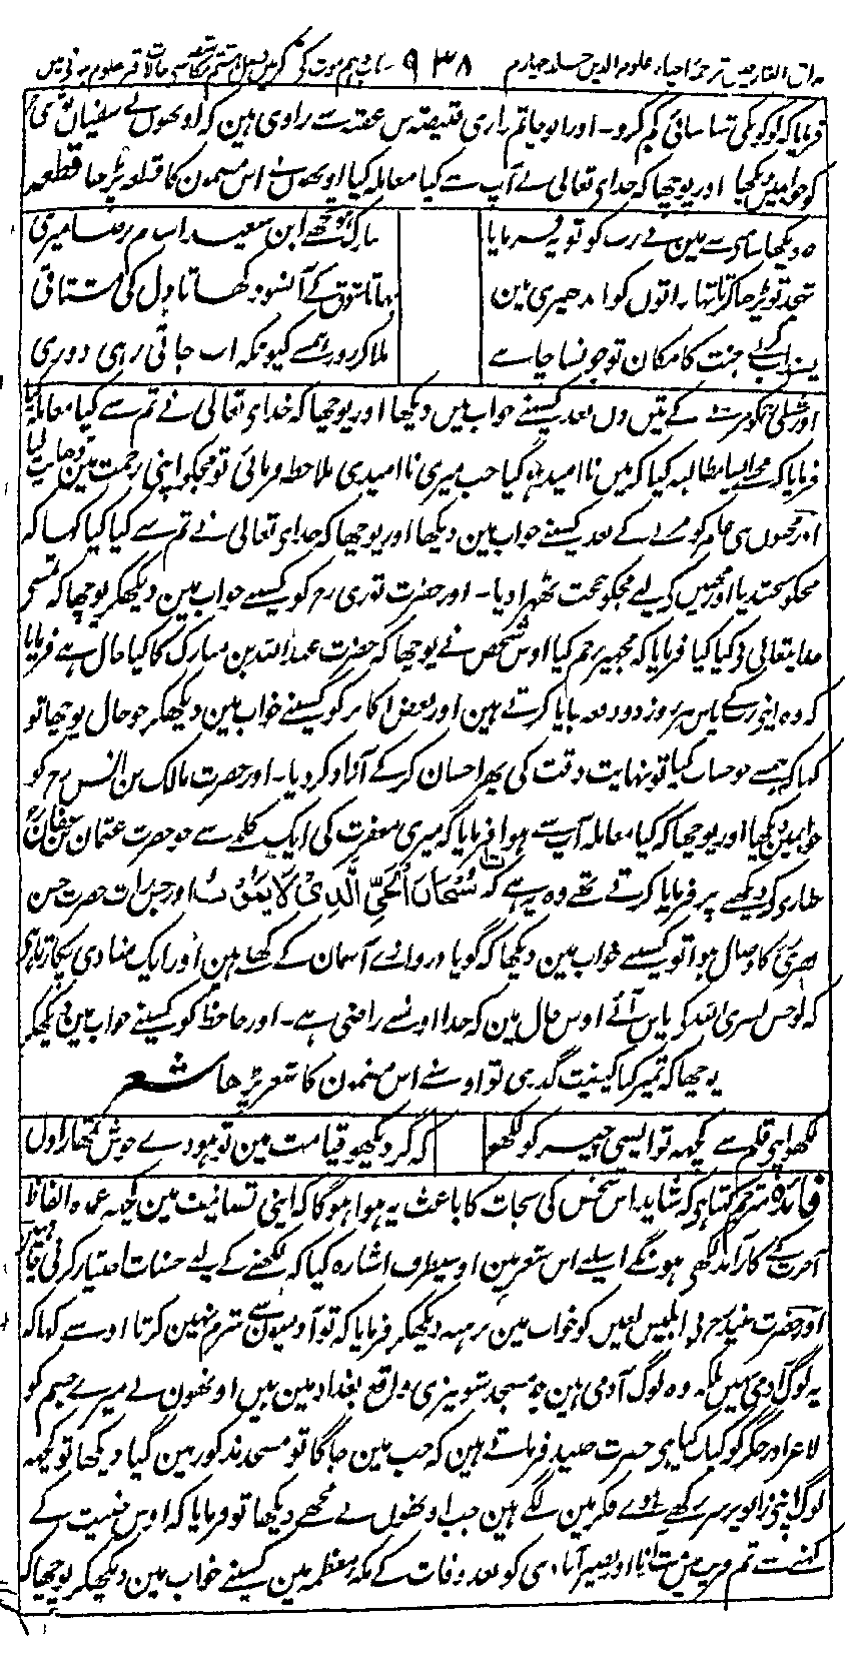 مذاق العارفین ترجمہ احیاء علوم الدین جلد چہارم ۹۳۸ باب دہم موت کے ذکر میں فصل ہشتم
فرمایا کہ لوگوں کی شناسائی کم کرو۔ اور ابو حاتم رازی قبیصہ بن عقبہ سے راوی ہین کہ اونھون نے سفیان ثوری
کو خواب مین دیکھا اور پوچھا کہ خدای تعالی نے آپ سے کیا معاملہ کیا اونھون نے اس مضمون کا قطعہ پڑھا قطعہ
دیکھا سامنے مین نے رب کو تو یہ فرمایا مبارک ہو تجھے ابن سعید اب میری
تہجد تو پڑھا کرتا تہا راتون کو اندھیری مین شوق کے آنسو دل کی
پسند اب کر لے جنت کا مکان تو جو نسا چاہے ملا کر روز ہمسے کیونکہ اب جاتی رہی دوری
اور شبلی کو موت کے تین دن بعد کسینے خواب میں دیکھا اور پوچھا کہ خدای تعالی نے تم سے کیا معاملہ کیا
فرمایا کہ مجھسے ایسا مطالبہ کیا کہ مین نا امید ہو گیا جب میری نا امیدی ملاحظہ فرمائی تو مجکو اپنی رحمت مین ڈھانپ لیا
اور مجنون بنی عامر کو مرنے کے بعد کسینے خواب مین دیکھا اور پوچھا کہ خدای تعالی نے تم سے کیا کیا کہا کہ
مجکو بخشدیا اور محبین کے لیے مجکو حجت ٹھہرا دیا۔ اور حضرت ثوری رح کو کسینے خواب مین دیکھکر پوچھا کہ تمسے
خدایتعالی نے کیا کیا فرمایا کہ مجھپر رحم کیا اوس شخص نے پوچھا کہ حضرت عبد اللہ بن مبارک کا کیا حال ہے فرمایا
کہ وہ اپنے رب کے پاس ہر روز دو دفعہ جایا کرتے ہین اور بعض اکابر کو کسینے خواب مین دیکھکر جو حال پوچھا تو
کہا کہ ہمسے جو حساب کیا تو نہایت دقت کی پھر احسان کر کے آزاد کر دیا۔ اور حضرت مالک بن انس رح کو
خواب مین دیکھا اور پوچھا کہ کیا معاملہ آپ سے ہوا فرمایا کہ میری مغفرت کی ایک کلمہ سے جو حضرت عثمان بن عفان رض
جنازی کو دیکھنے پر فرمایا کرتے تھے وہ یہ ہے کہ سُبْحَانَ الْحَیِّ الَّذِیْ لَا یَمُوْتُ اور جس رات حضرت حسن
بصری کا وصال ہوا تو کسینے خواب مین دیکھا کہ گویا دروازے آسمان کے کھلے ہین اور ایک منادی پکارتا ہی
کہ لو حسن بصری اللہ کے پاس آئے اوس حال مین کہ خدا اونسے راضی ہے۔ اور جاحظ کو کسینے خواب مین دیکھکر
پوچھا کہ تمپر کیا کیفیت گذری تو اوسنے اس مضمون کا شعر پڑھا شعر
لکھو اپنی قلم سے کچھہ تو ایسی چیز کو لکھو کہ گر دیکھو قیامت مین تو ہووے خوش تمھارا دل
فائدہ مترجم کہتا ہی کہ شاید اس شخص کی نجات کا باعث یہ ہوا ہوگا کہ اپنی تصانیف مین کچھہ عمدہ الفاظ
آخرت کے کارآمد لکھی ہونگے اسلیے اس شعر مین اوسیطرف اشارہ کیا کہ لکھنے کے لیے حسنات اختیار کرنی چاہیین
اور حضرت جنید رح نے ابلیس لعین کو خواب مین برہنہ دیکھکر فرمایا کہ تو آدمیون سے شرم نہین کرتا اوسنے کہا کہ
یہ لوگ آدمی نہین بلکہ وہ لوگ آدمی ہین جو مسجد شونیزی واقع بغداد مین ہین اونھون نے میرے جسم کو
لاغر اور جگر کو کباب کیا ہی حضرت جنید فرماتے ہین کہ جب مین جاگا تو مسجد مذکور مین گیا دیکھا تو کچھہ
لوگ اپنی زانو پر سر رکھے ہوے فکر مین لگے ہین جب اونھون نے مجھے دیکھا تو فرمایا کہ اوس خبیث کے
کہنے سے تم فریب مین مت آنا اور نصیر آبادی کو بعد وفات کے مکہ معظمہ مین کسینے خواب مین دیکھکر پوچھا کہ